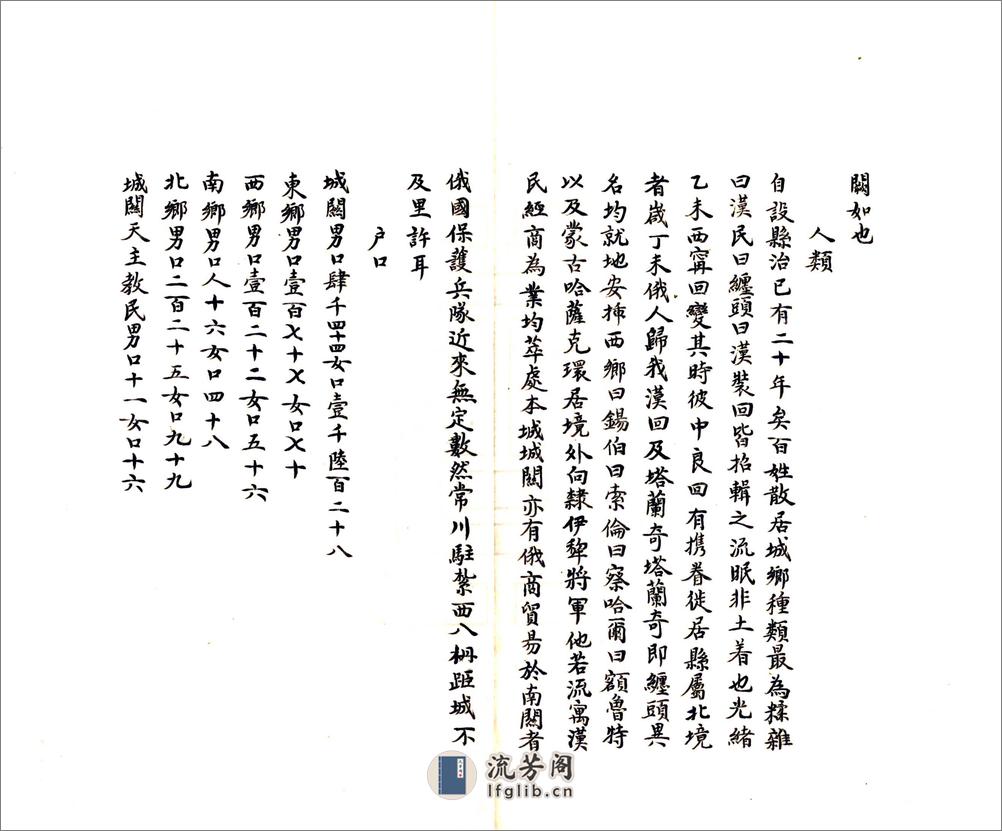 闕如也
人類
自設縣治已有二十年矣百姓散居城鄉種類最為糅雜
曰漢民曰纏頭曰漢裝回皆招輯之流氓非土着也光緒
乙未西甯回變其時彼中良回有携眷徙居縣屬北境
者歲丁未俄人歸我漢回及塔蘭奇塔蘭奇即纏頭異
名均就地安揷西鄉曰錫伯曰索倫曰察哈爾曰額魯特
以及蒙古哈薩克環居境外向隸伊犂將軍他若流寓漢
民經商為業均萃處本城城關亦有俄商貿易於南關者
俄國保護兵隊近來無定數然常川駐紮西八柵距城不
及里許耳
户口
城關男口肆千四十四女口壹千陸百二十八
東鄉男口壹百七十七女口七十
西鄉男口壹百二十二女口五十六
南鄉男口人十六女口四十八
北鄉男口二百二十五女口九十九
城關天主教民男口十一女口十六
流芳阁
lfglib.cn